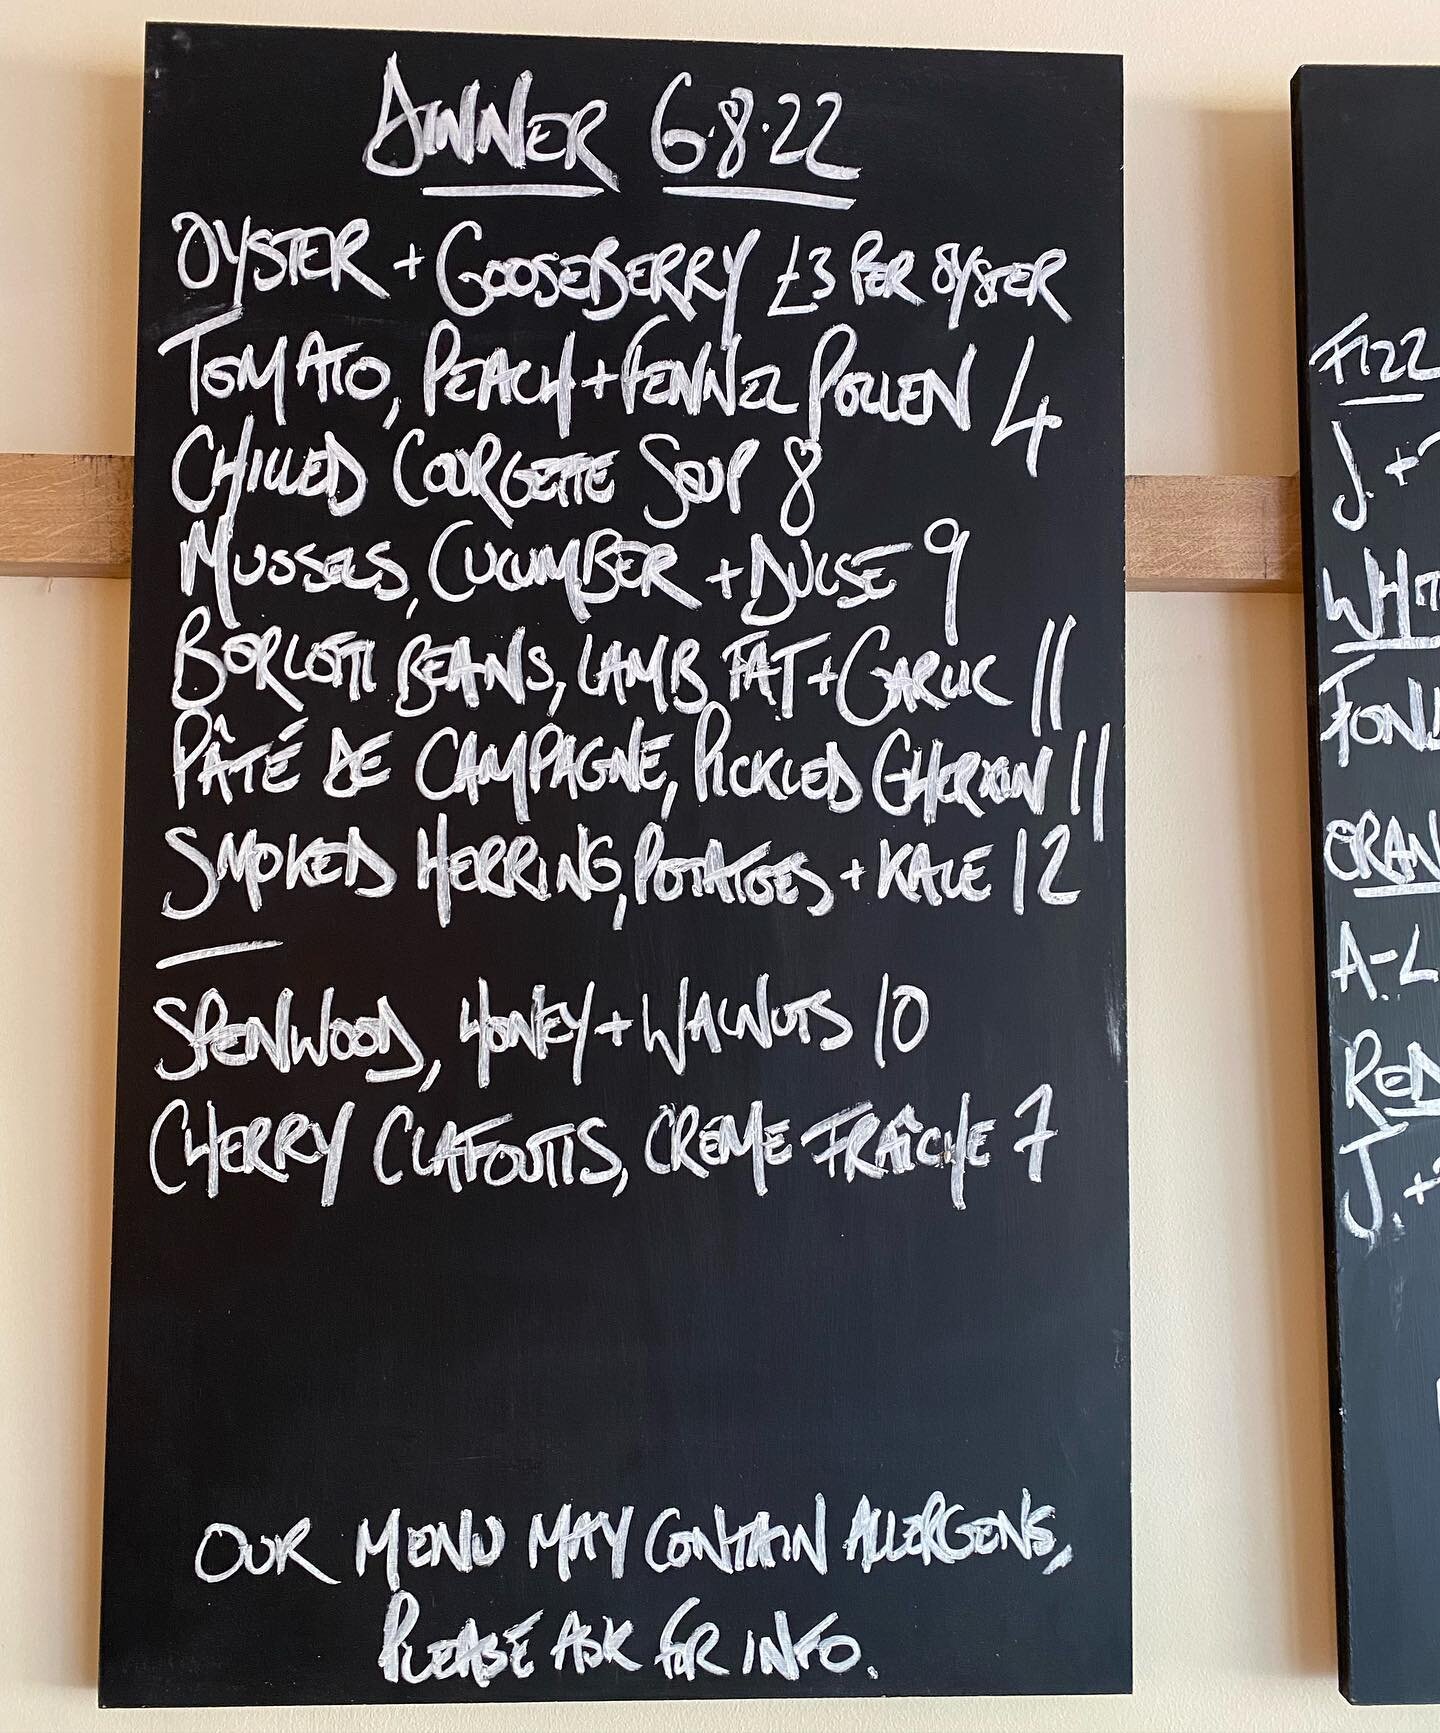 DINNER 6.8.22
OYSTER + GOOSEBERRY £3 PER OYSTER
TOMATO, PEACH + FENNEL POLLEN 4
CHILLED COURGETTE SOUP 8
MUSSELS, CUCUMBER + DULSE 9
BORLOTTI BEANS, LAMB FAT + GARLIC 11
PÂTÉ DE CAMPAGNE, PICKLED GHERKIN 11
SMOKED HERRING, POTATOES + KALE 12
SPENWOOD, HONEY + WALNUTS 10
CHERRY CLAFOUTIS, CREME FRAÎCHE 7
OUR MENU MAY CONTAIN ALLERGENS,
PLEASE ASK FOR INFO.
FIZZ
J. +
WHIT
FOND
ORAN
A-L
RED
J. +